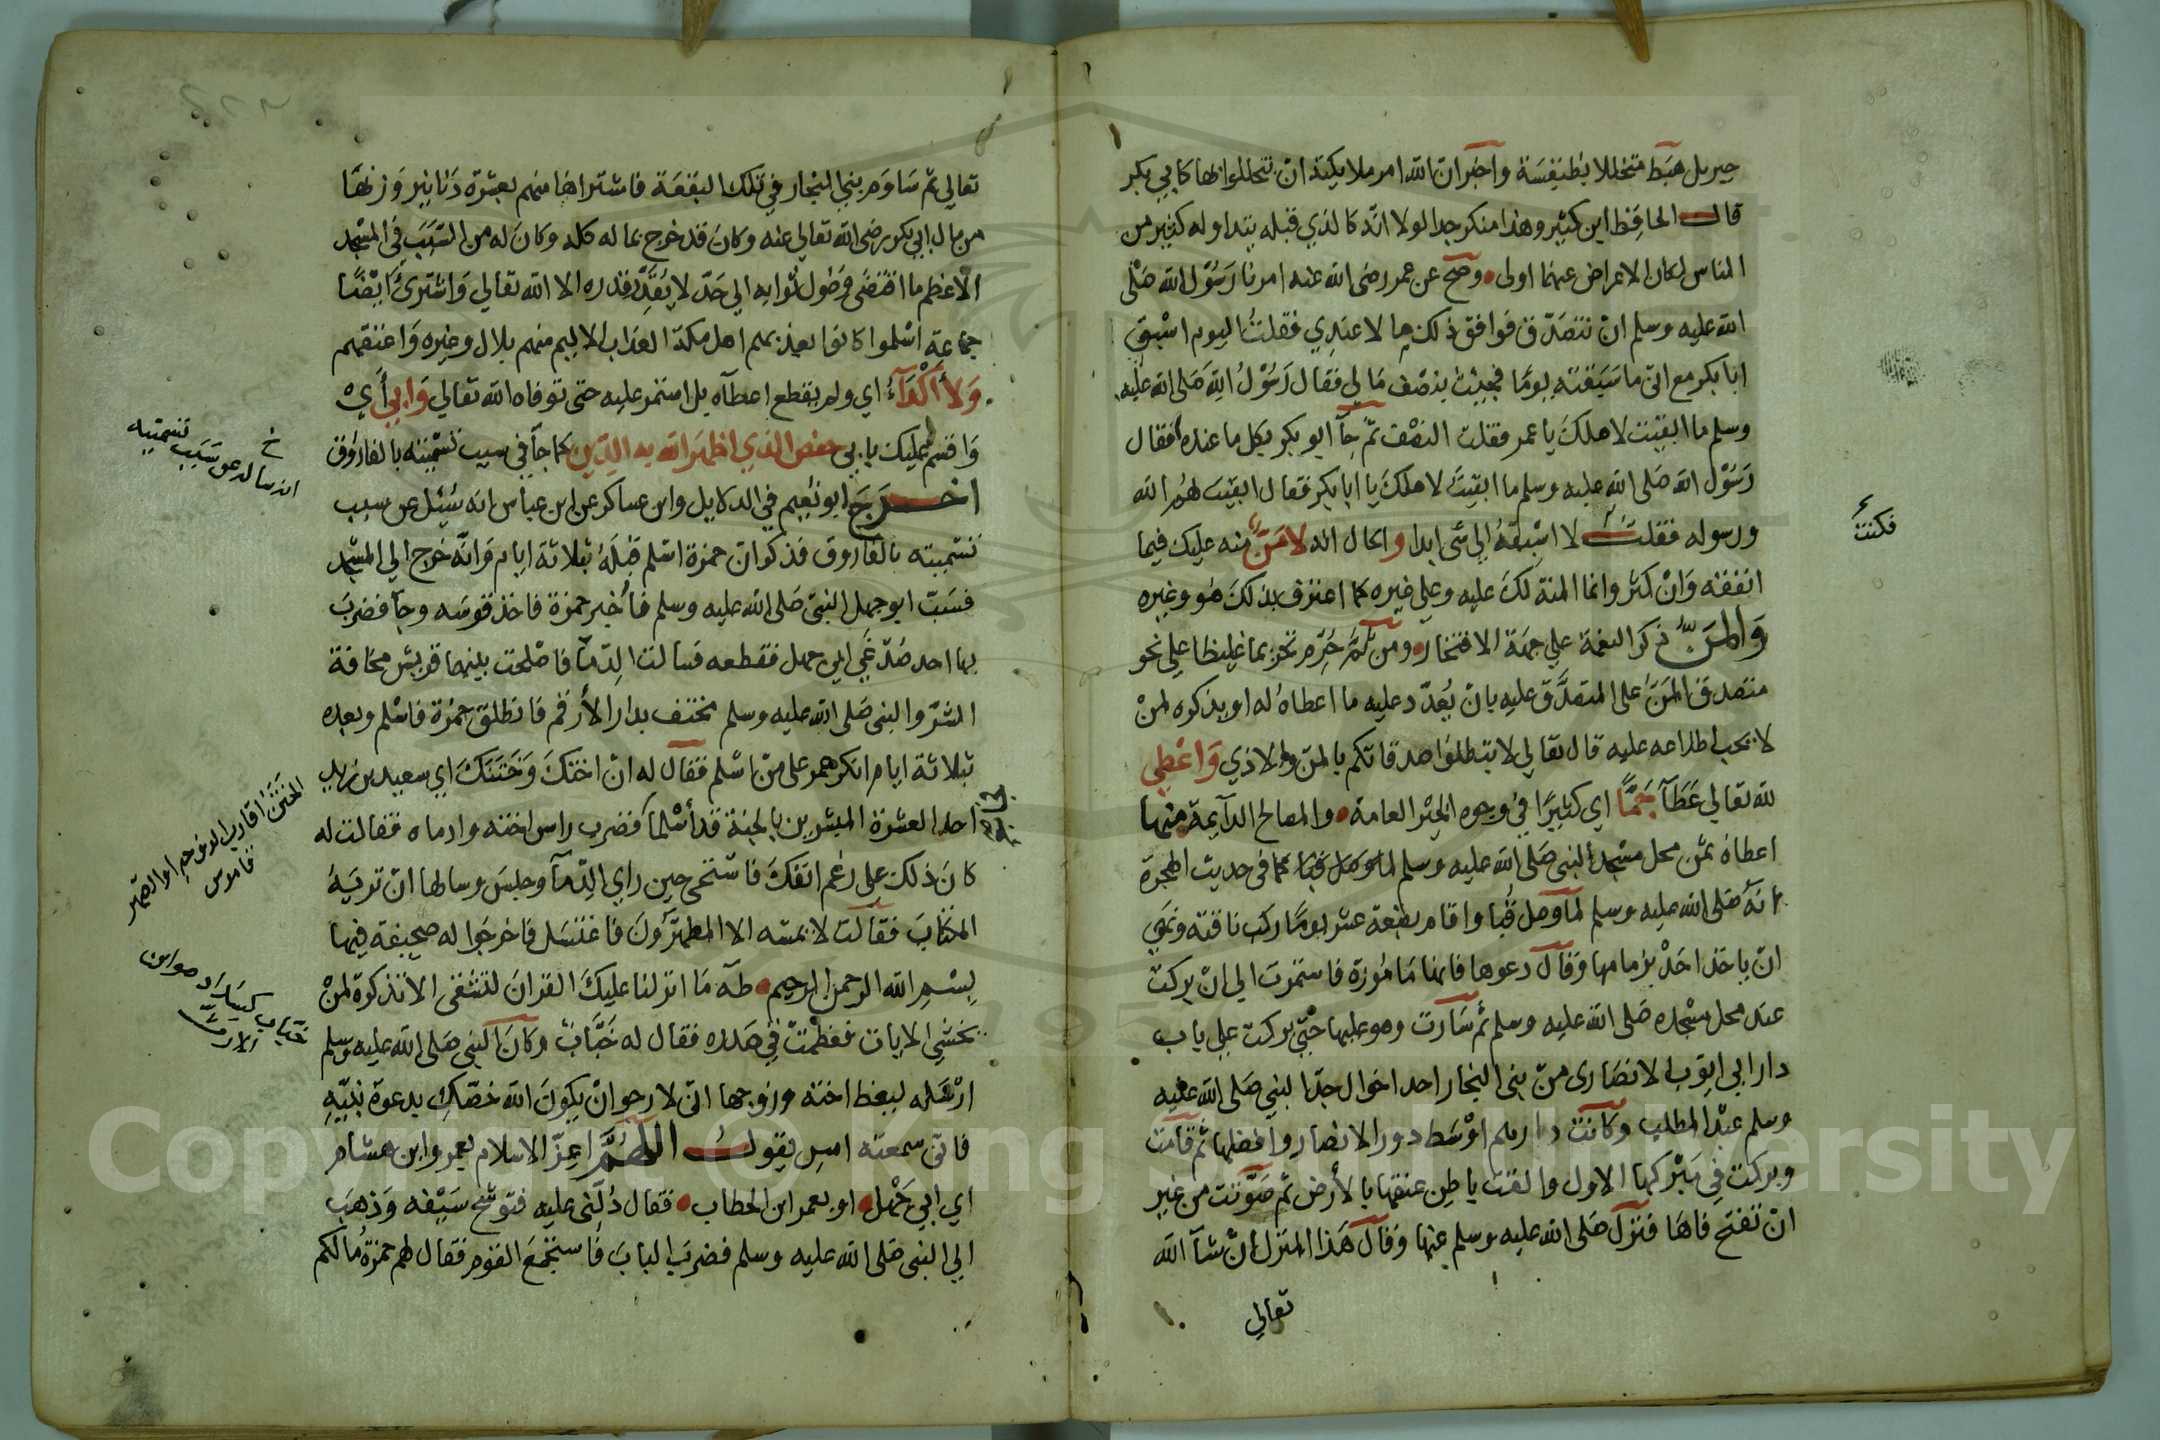 جبريل هبط متخللا بطنفسة واخبر ان الله امر ملايكته ان تتخللوا بها كابي بكر
قال الحافظ ابن كثير وهذا منكر جدا لولا انه كالذي قبله يتداوله كثير من
الناس لكان الاعراض عنهما اولى وصح عن عمر رضى الله عنه امرنا رَسُوْل الله صَلى
الله عليه وسلم ان نتصَدّق فوافق ذلك مالا عندِي فقلتُ اليوم اسْبق
ابا بكر مع انى ما سَبَقته يومًا فجئت بنصْف مَالي فقال رَسُوْلُ الله صَلى الله عليه
وسلم ما ابقيت لاهلكَ يا عمر فقلت النصْف ثمّ جآ ابو بكر بكل ما عنده فقال
رَسُوْل الله صَلى الله عليه وسلم ما ابقيتَ لاهلكَ يا ابا بكر فقال ابقيت لهُم الله
ورسوله فقلت لا اسْبقهُ الى شى ابدا والحال انه لا مَنّ منه عليك فيما
فكنت
انفقه وَانْ كثر وانما المنة لكَ عليه وعلى غيره كما اعترف بذلكَ هو وغيره
وَالمنّ ذكر النعمة على جهة الافتخار ومن ثَمّ حُرّم تحريما غليظا على نحو
متصدق المَنّ على المتصدَّق عليه بان يُعدّد عليه ما اعطاهُ له او يذكره لمنْ
لا يحب اطلاعه عليه قال تعالى لا تبطلوا صدقاتكم بالمن والاذي وَاعْطي
لله تعالي عَطَآ جمًّا اي كثيرًا في وجوه الخيْر العامة والمصالح الدآيمة منها
اعطاه ثمن محل مسْجد النبى صَلى الله عليه وسلم كما في حديث الهجرة
انهُ صَلى الله عليه وسلم لمآ وصل قُبا واقام بضعة عشر يومًا ركب ناقته ونهي
انْ ياخذ احَدْ بزمامها وَقال دعوها فانها مَامُورَة فاستمرت الى انْ بركت
عند محل مسْجده صَلى الله عليه وسلم ثم سَارت وهو عليها حَتى بركت على باب
دار ابى ايوب الانصَارى منْ بنى النجار احد اخوال جدّ النبى صَلى الله عليه
وسلم عبْد المطلب وكانت دارهم اوْسَط دور الانصار وافضلها ثم قامت
وبركت فِي مَبْركها الاول والقت باطن عنقها بالأرض ثم صَوّتت من غير
انْ تفتح فاها فنزل صَلى الله عليه وسلم عنها وَقال هَذا المنزل انْ شآ الله
تعالي
تعالي ثمّ سَاوَم بنى النجار في تلك البقعَة فاشتراها منهم بعشرَة دَنانير وَزنها
من مال ابى بكر رضى الله تعالي عنه وكان قد خرج بماله كله وكان له من السّبَب في المسْجد
الأعظم ما اقتضى وصُول ثوابه الى حَدّ لا يُقدّر قدره الا الله تعالي وَاشترى ايْضًا
جمَاعة اسْلموا كانوا يعذبهم اهل مكة العذاب الاليم منهم بلال وغيره وَاعتقهم
وَلا أكْدَآءُ اي ولم يقطع اعطآه بل استمر عليه حتى توفاه الله تعالي وَابي أي
وَاقسم عليك بابي حفص الذي اظهَر الله به الدّين كما جآ في سبب تسْميته بالفارُوق
خ
انه سالعمر عن سَبَب تسميته
اخرَجَ ابو نُعيم في الدلايل وابن عساكر عن ابن عباس انه سُئل عن سبب
تسْميته بالفاروق فذكر ان حمزة اسْلم قبْلهُ بثلاثة ايام وَانَّه خرج الى المسْجد
فسَبّ ابو جهل النبىّ صَلى الله عليه وسلم فأُخبر حمزة فاخذ قوسَه وجآ فضربَ
بها احد صُدْغَي ابى جهل فقطعه فسالت الدّمآ فاصْلحت بينهما قريش مخافة
الشرّ والنبى صَلى الله عليه وسلم مختف بدار الأرقم فانطلق حمزة فاسْلم وبعده
بثلاثة ايام انكر عمر على منْ اسْلم فقال له انْ اختكَ وَخَتَنكَ اي سعيد بن زيد
احد العشرة المبشرين بالجنة قد أسْلما فضرب راس اخته وادماه فقالت له
الخَتن اقارب الزوجه او الصّهر
قاموس
كانَ ذلك على رغم انفكَ فاستحى حين راي الدّمآ وجلسَ وسالها انْ تريهُ
الكتابَ فقالت لا يمسّه الا المطهّرُونَ فاغتسَل فاخرجُوا له صحيفة فيها
بسْم الله الرحمن الرحيم طه مَا انزلنا عليكَ القرانَ لتشقى الا تذكرة لمنْ
يخشى الايات فعظمَتْ في صَدره فقال له خَبّابْ وكانَ النبى صَلى الله عليه وسلم
خباب كشدّاد هو ابن
الارت
ارْسَله ليعظ اخته وزوجها انى لارجو انْ يكونَ الله خصّكَ بدعوَة نبيّه
فانى سمعته امسِ يقول اللهُمّ اعزّ الاسلام بعمرو ابن هشام
اي ابي جَهْل او بعمر ابن الخطاب فقال دُلّنى عليه فتوشح سَيْفه وَذهبَ
الي النبى صَلى الله عليه وسلم فضربَ البابَ فاستجْمعَ القوم فقال لهم حمزةُ مالكم
Copyright © King Saud University